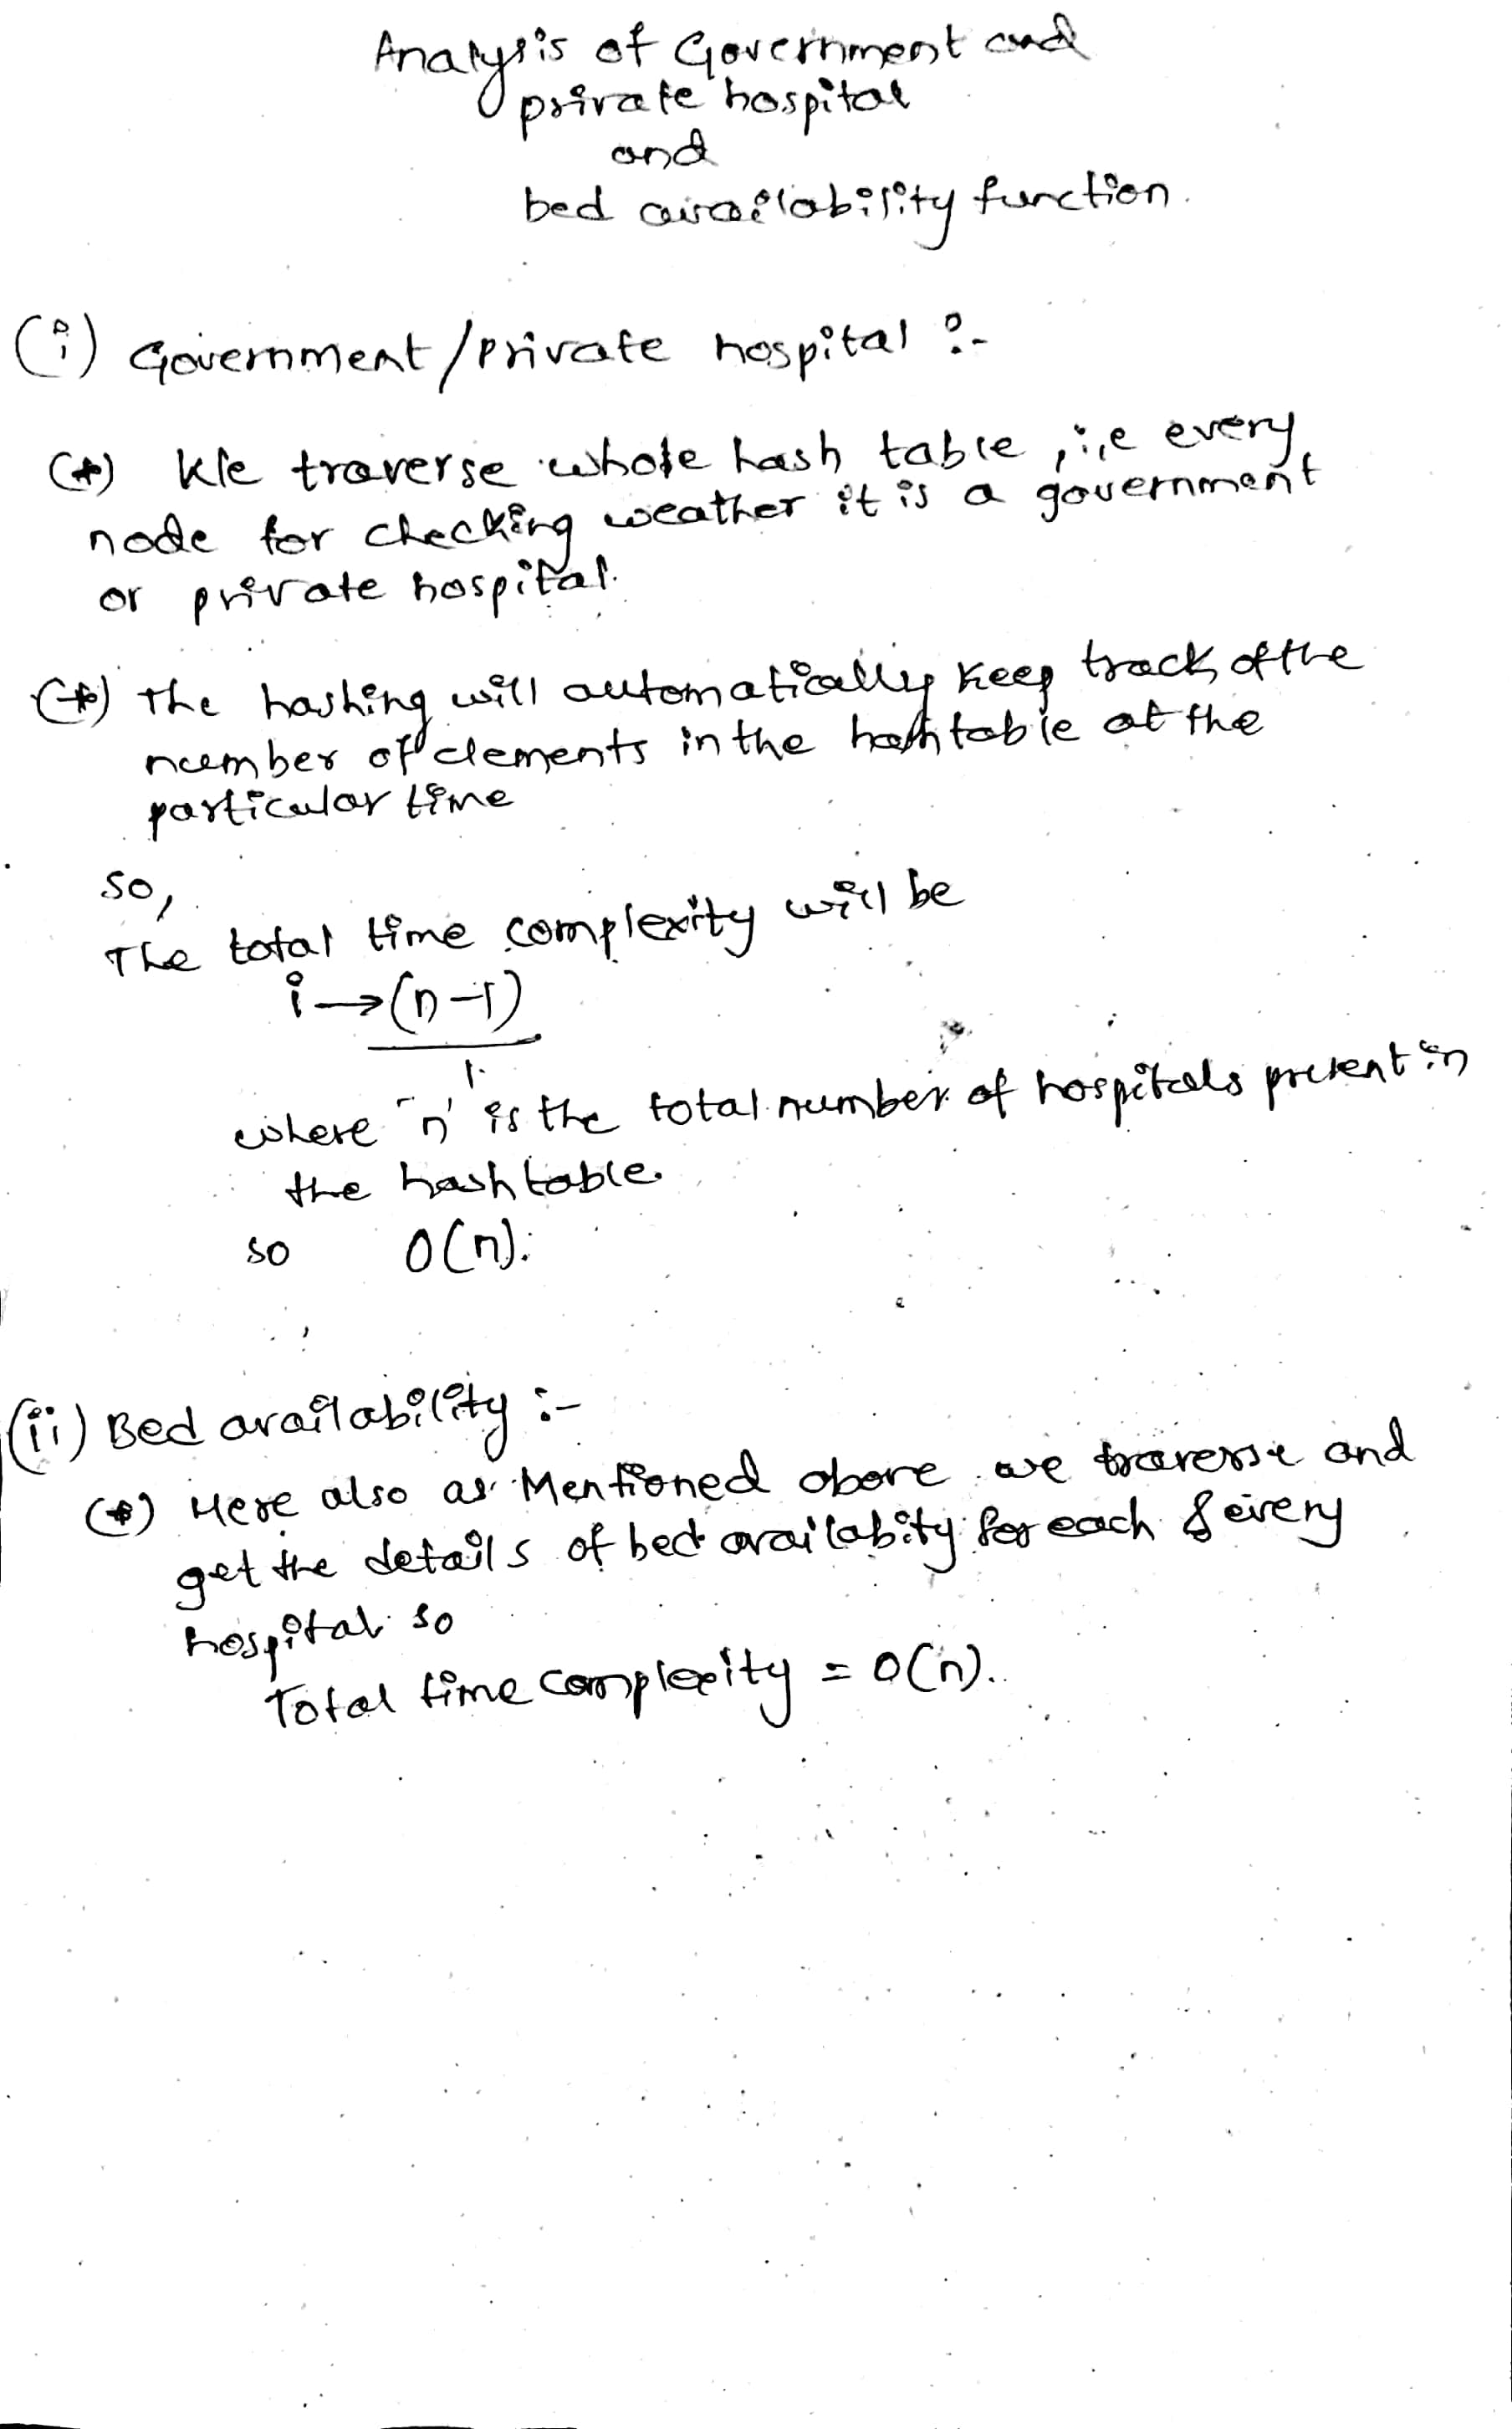 Analysis of Government and
private hospital
and
bed availability function.
(i) Government/private hospital :-
(*) We traverse whole hash table, i.e every
node for checking weather it is a government
or private hospital.
(*) The hashing will automatically keep track of the
number of elements in the hashtable at the
particular time
so,
The total time complexity will be
i→(n-1)
1.
where 'n' is the total number of hospitals present in
the hashtable.
so O(n).
(ii) Bed availability :-
(*) Here also as Mentioned above we traverse and
get the details of bed availabity for each & every
hospital so
Total time complexity = O(n).